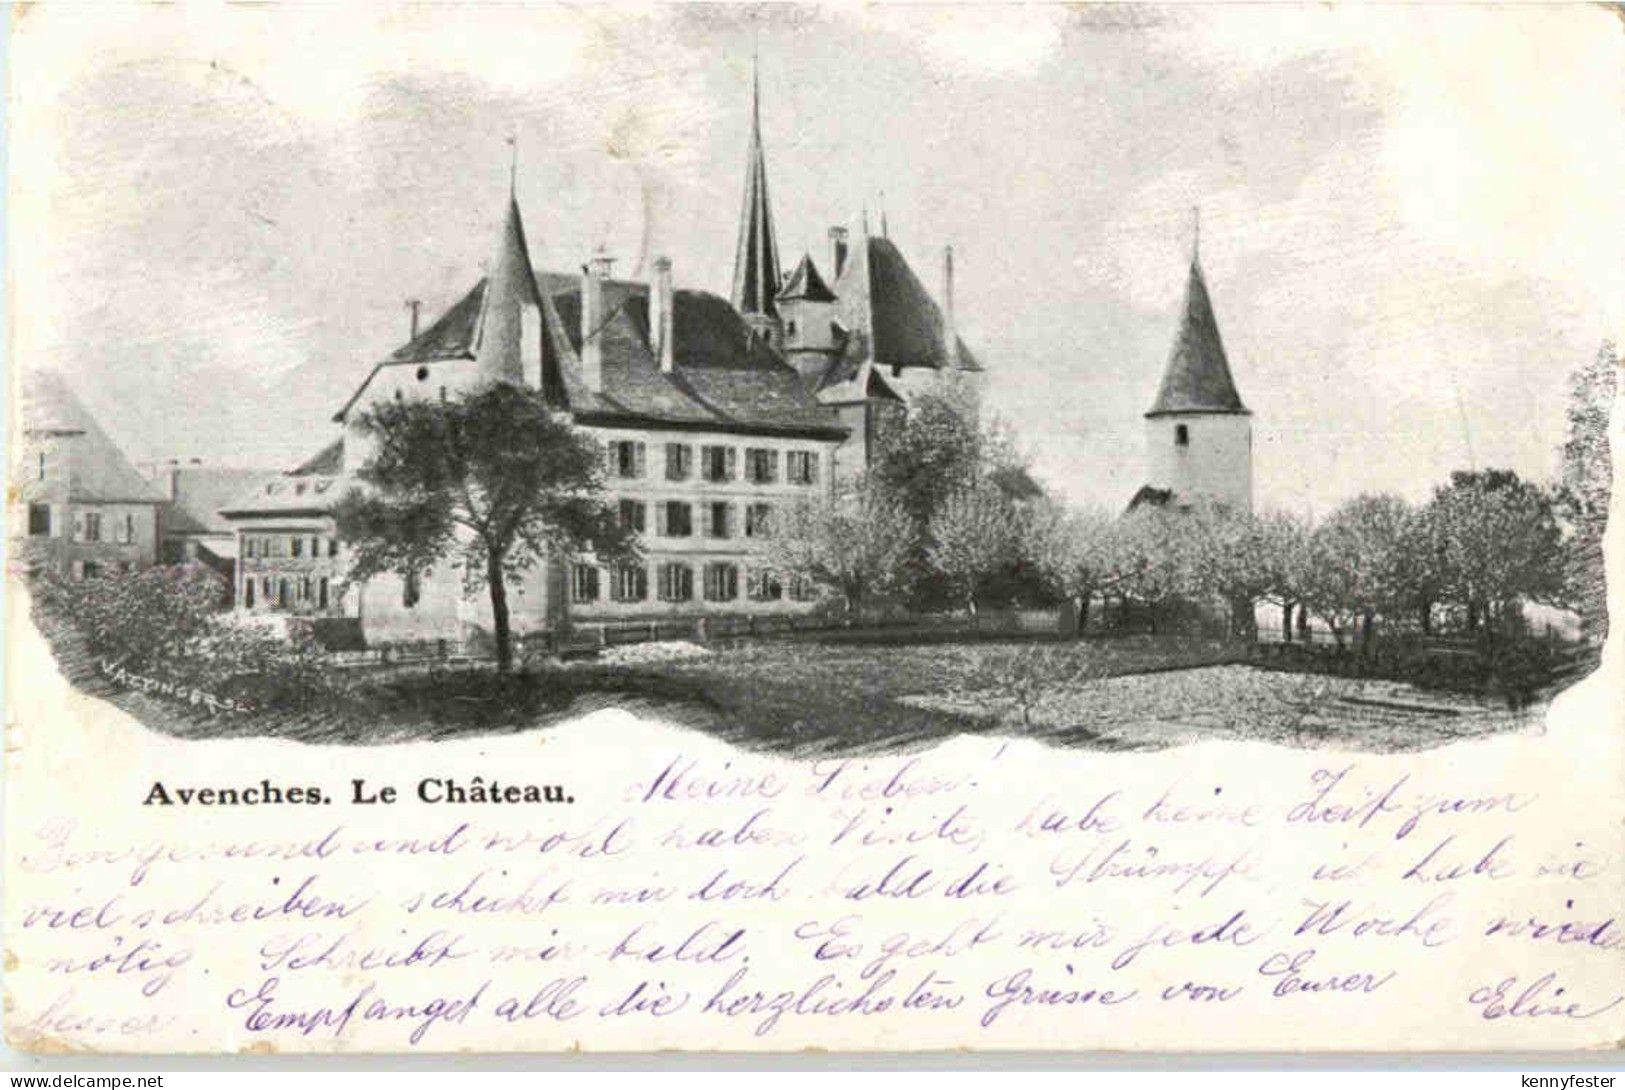 VATTINGER SC.
Avenches. Le Château.
Meine Lieben!
Bin gesund und wohl haben Visite, habe keine Zeit zum
viel schreiben schickt mir doch bald die Strümpfe, ich habe sie
nötig. Schreibt mir bald. Es geht mir jede Woche wieder
besser. Empfanget alle die herzlichsten Grüsse von Eurer Elise
delcampe.net
kennyfester